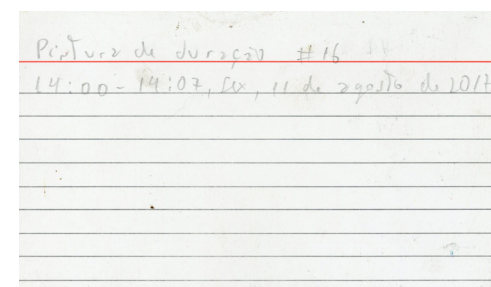 Pintura de duração #16
14:00 - 14:07, sex, 11 de agosto de 2017